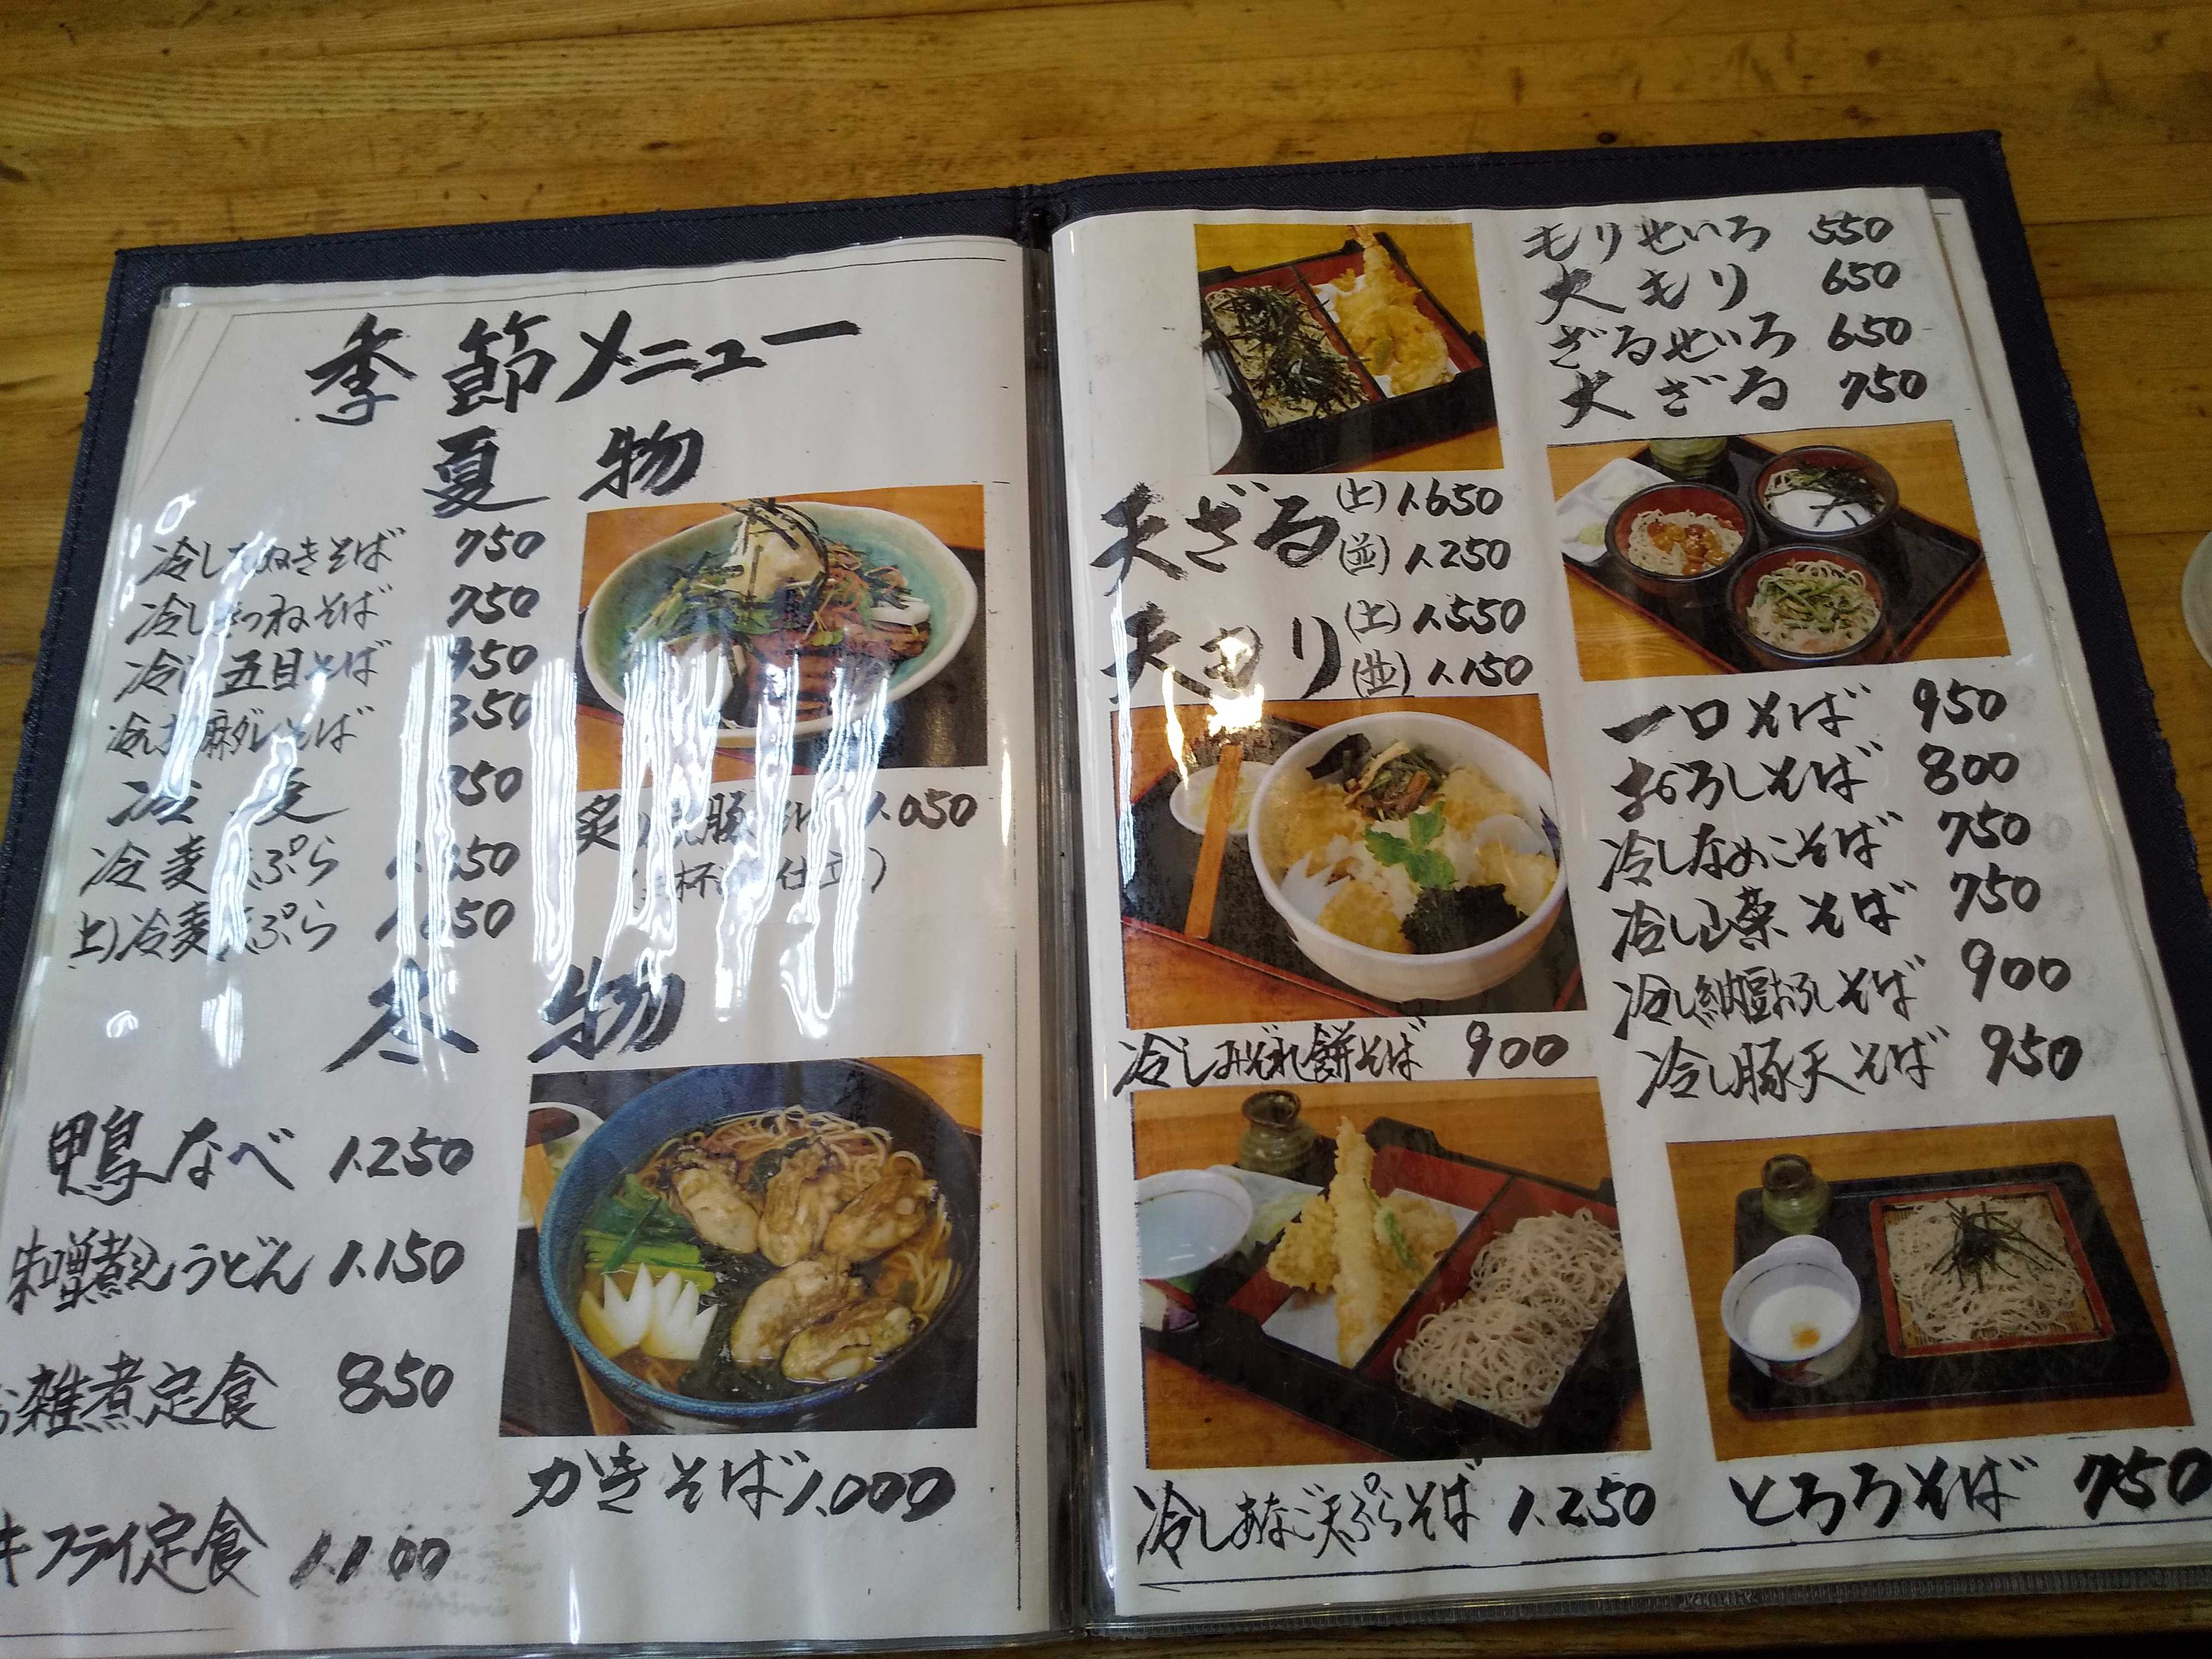 季節メニュー
夏物
冷したぬきそば 750
冷しきつねそば 750
冷し五目そば 950
そば 850
冷麦
冷麦 ぷら
冷麦 ぷら
豚 1,050
冬物
鴨なべ 1,250
味噌煮込うどん 1,150
お雑煮定食 850
キフライ定食 1,100
かきそば 1,000
天ざる (上) 1,650
(並) 1,250
天もり (上) 1,550
(並) 1,150
冷しみぞれ餅そば 900
冷しあなご天ぷらそば 1,250
もりせいろ 550
大もり 650
ざるせいろ 650
大ざる 750
一口そば 950
おろしそば 800
冷しなめこそば 750
冷し山菜そば 750
冷し納豆おろしそば 900
冷し豚天そば 950
とろろそば 750